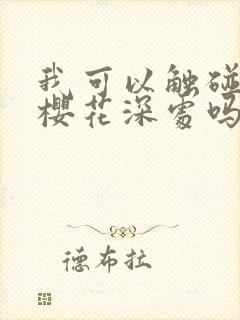 我可以触碰
樱花深处吗
德布拉